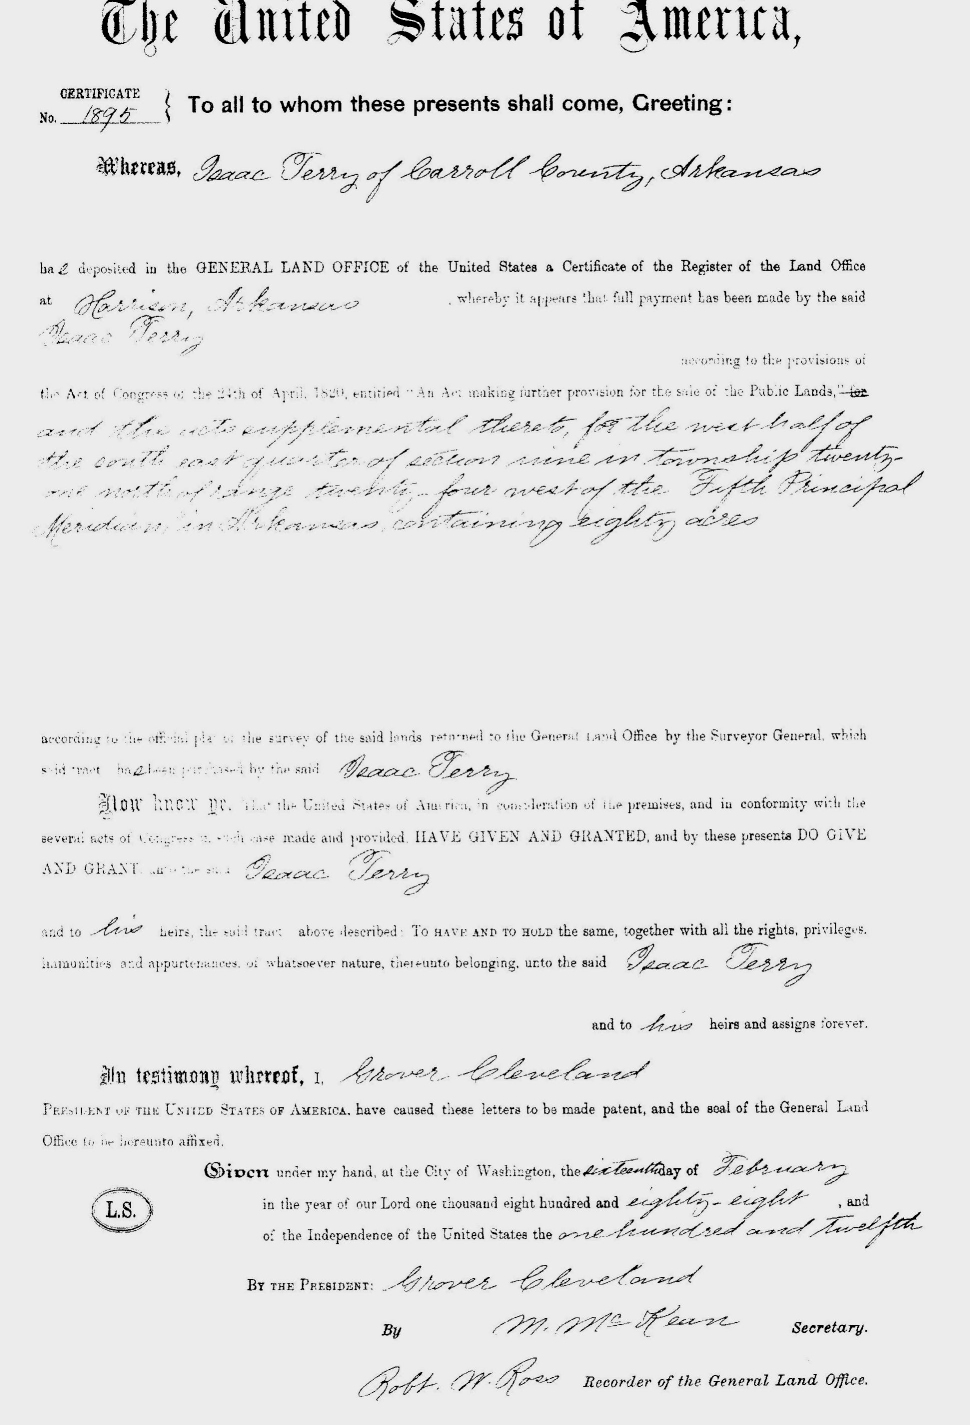 The United States of America,
CERTIFICATE
No. 1895
To all to whom these presents shall come, Greeting:
Whereas, Isaac Terry of Carroll County, Arkansas
had deposited in the GENERAL LAND OFFICE of the United States a Certificate of the Register of the Land Office
at Harrison, Arkansas , whereby it appears that full payment has been made by the said
Isaac Terry
according to the provisions of
the Act of Congress of the 24th of April, 1820, entitled "An Act making further provision for the sale of the Public Lands," for
and the acts supplemental thereto, for the west half of
the south east quarter of section nine in township twenty-
one north of range twenty-four west of the Fifth Principal
Meridian in Arkansas, containing eighty acres
according to the official plat of the survey of the said lands returned to the General Land Office by the Surveyor General, which
said tract has been purchased by the said Isaac Terry
Now know ye, that the United States of America, in consideration of the premises, and in conformity with the
several acts of Congress in such case made and provided, HAVE GIVEN AND GRANTED, and by these presents DO GIVE
AND GRANT, unto the said Isaac Terry
and to his heirs, the said tract above described: TO HAVE AND TO HOLD the same, together with all the rights, privileges,
immunities and appurtenances, of whatsoever nature, thereunto belonging, unto the said Isaac Terry
and to his heirs and assigns forever.
In testimony whereof, I, Grover Cleveland
PRESIDENT OF THE UNITED STATES OF AMERICA, have caused these letters to be made patent, and the seal of the General Land
Office to be hereunto affixed.
Given under my hand, at the City of Washington, the sixteenth day of February
L.S.
in the year of our Lord one thousand eight hundred and eighty-eight , and
of the Independence of the United States the one hundred and twelfth
BY THE PRESIDENT: Grover Cleveland
By M. McKean Secretary.
Robt. W. Ross Recorder of the General Land Office.